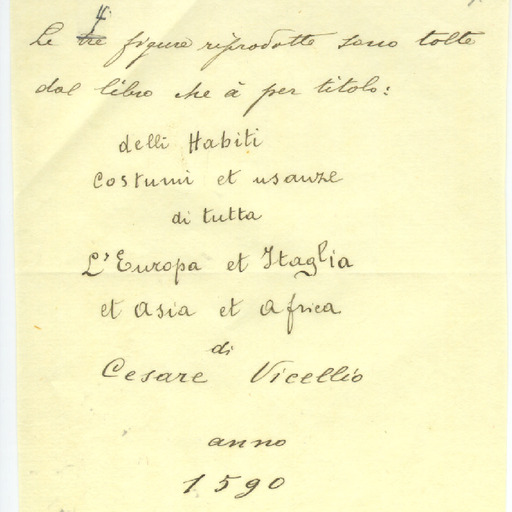 Le tre 4 figure riprodotte sono tolte
dal libro che à per titolo:
delli Habiti
costumi et usanze
di tutta
L'Europa et Itaglia
et Asia et Africa
di
Cesare Vicellio
anno
1590